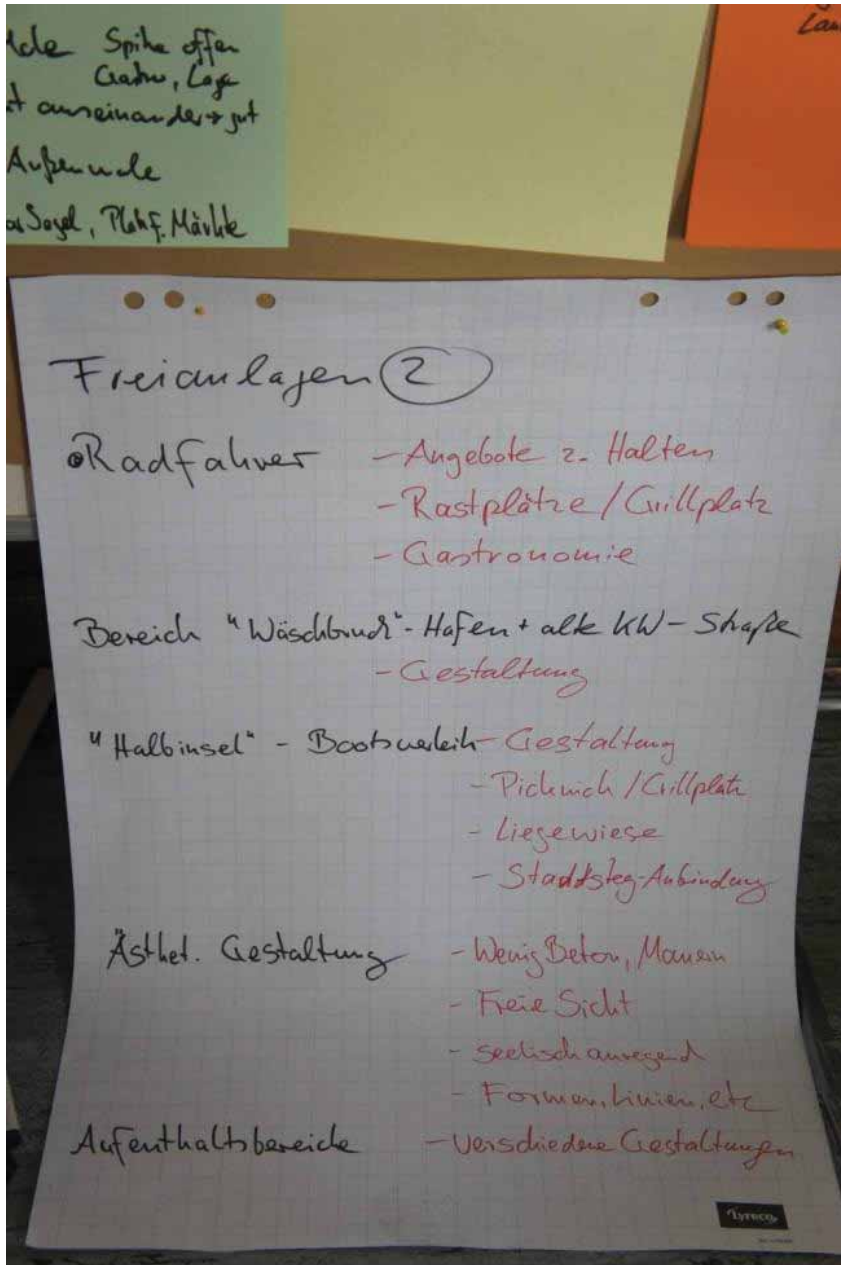 Spitze offen
Gastro, Lage
auseinander → gut
Außenmole
Segel, Platz f. Märkte
Freianlagen 2
Radfahrer - Angebote z. Halten
- Rastplätze / Grillplatz
- Gastronomie
Bereich "Wäschbruch" - Hafen + alte KW - Straße
- Gestaltung
"Halbinsel" - Bootsverleih - Gestaltung
- Picknick / Grillplatz
- Liegewiese
- Stadtsteg-Anbindung
Ästhet. Gestaltung - Wenig Beton, Mauern
- Freie Sicht
- seelisch anregend
- Formen, Linien, etc
Aufenthaltsbereiche - verschiedene Gestaltungen
Lyreco